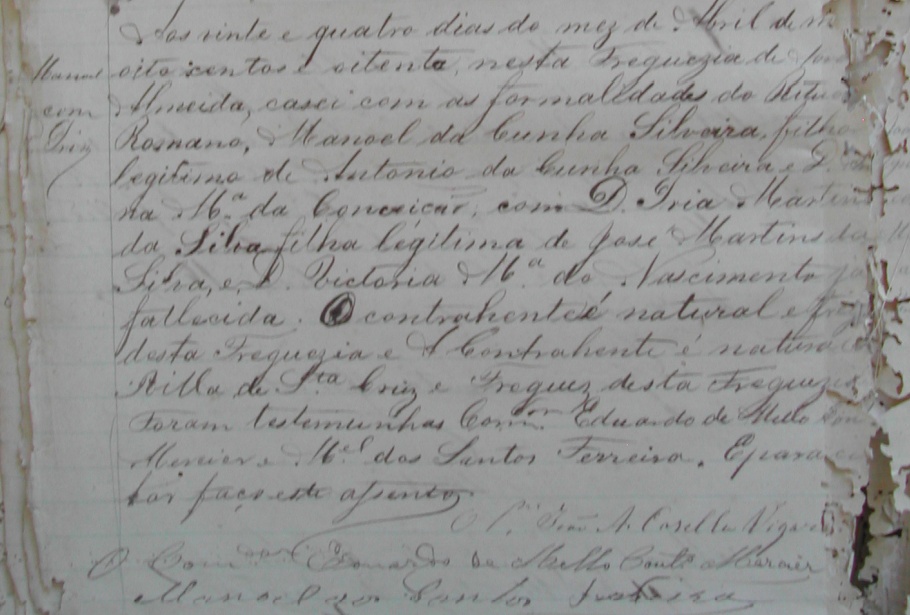 Aos vinte e quatro dias do mez de Abril de m
Manoel
com
Iria
oito centos e oitenta, nesta Freguezia de
Almeida, casei com as formalidades do Ritual
Romano, Manoel da Cunha Silveira, filho
legitimo de Antonio da Cunha Silveira e D.
na M.ª da Conceição, com D. Iria Martins
da Silva filha legitima de José Martins da
Silva, e D. Victoria M.ª do Nascimento ja
fallecida. O contrahente é natural e
desta Freguezia e A Contrahente é natural
Villa de S.ta Cruz e Freguez desta Freguezia
Foram testemunhas Com.or Eduardo de Mello
Mercier e M.el dos Santos Ferreira. E para
tar faço este assento
O P.e João A. Vigar
O Com.dor Eduardo de Mello Couto Mercier
Manoel dos Santos Ferreira